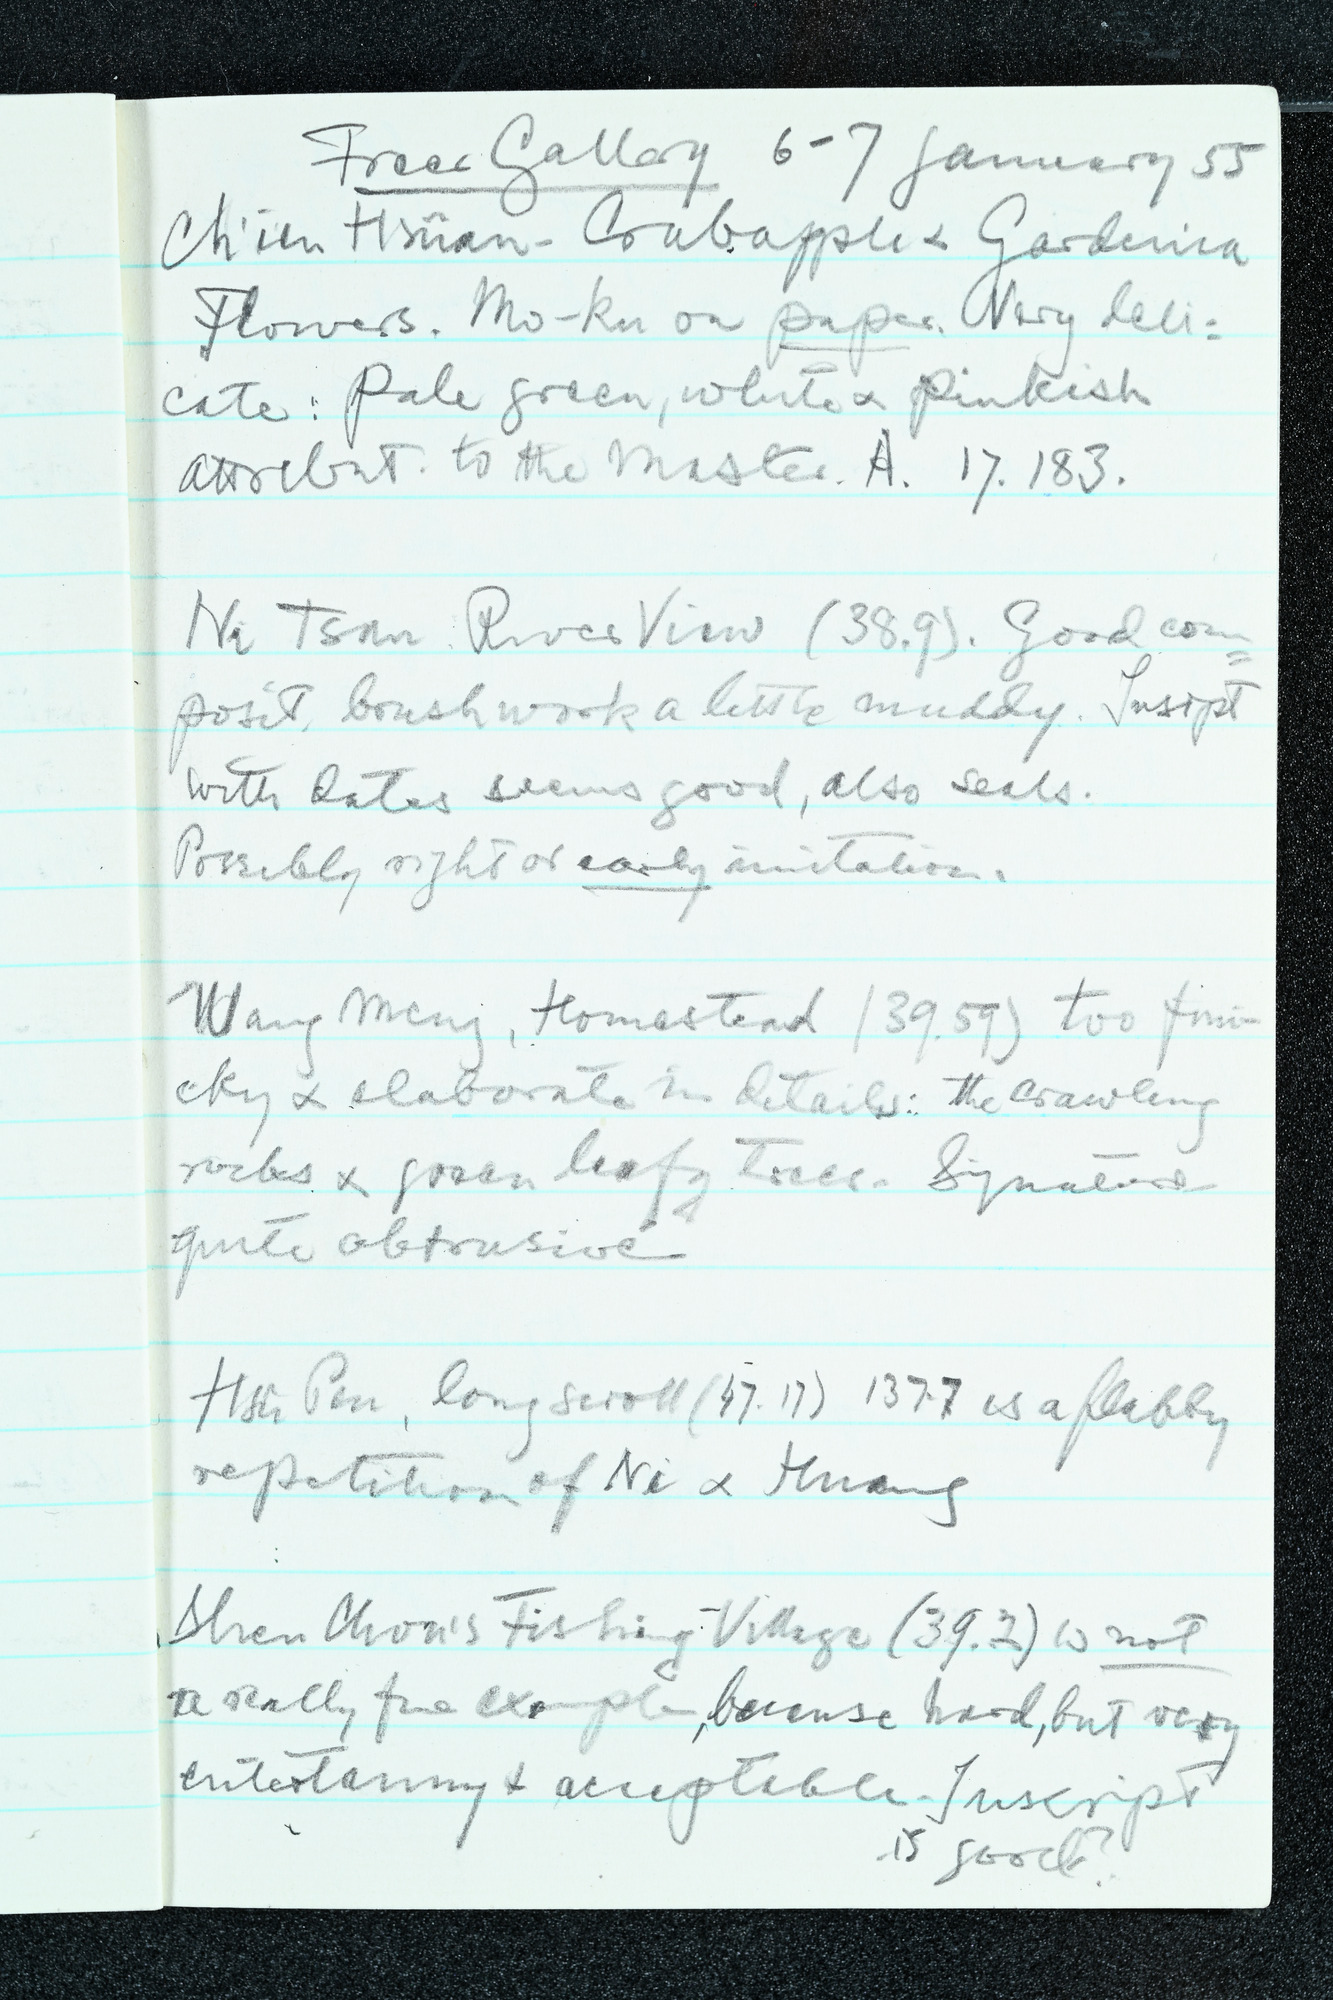 Freer Gallery 6-7 January 55
Ch'ien Hsüan - Crabapple & Gardenia
Flowers. Mo-ku on paper. Very deli=
cate: pale green, white & pinkish
attribut. to the Master. A. 17.183.
Ni Tsan River View (38.9). Good com=
posit, brushwork a little muddy. Inscpt
with dates seems good, also seals.
Possibly right or early imitation.
Wang Meng, Homestead (39.59) too fini-
cky & elaborate in details: the crawling
rocks & green leafy trees. Signature
quite obtrusive
Hsü Pen, long scroll (47.17) 1377 is a flabby
repetition of Ni & Huang
Shen Chou's Fishing-Village (39.2) is not
a really fine example, because hard, but very
entertaining & acceptable. Inscript
is good?